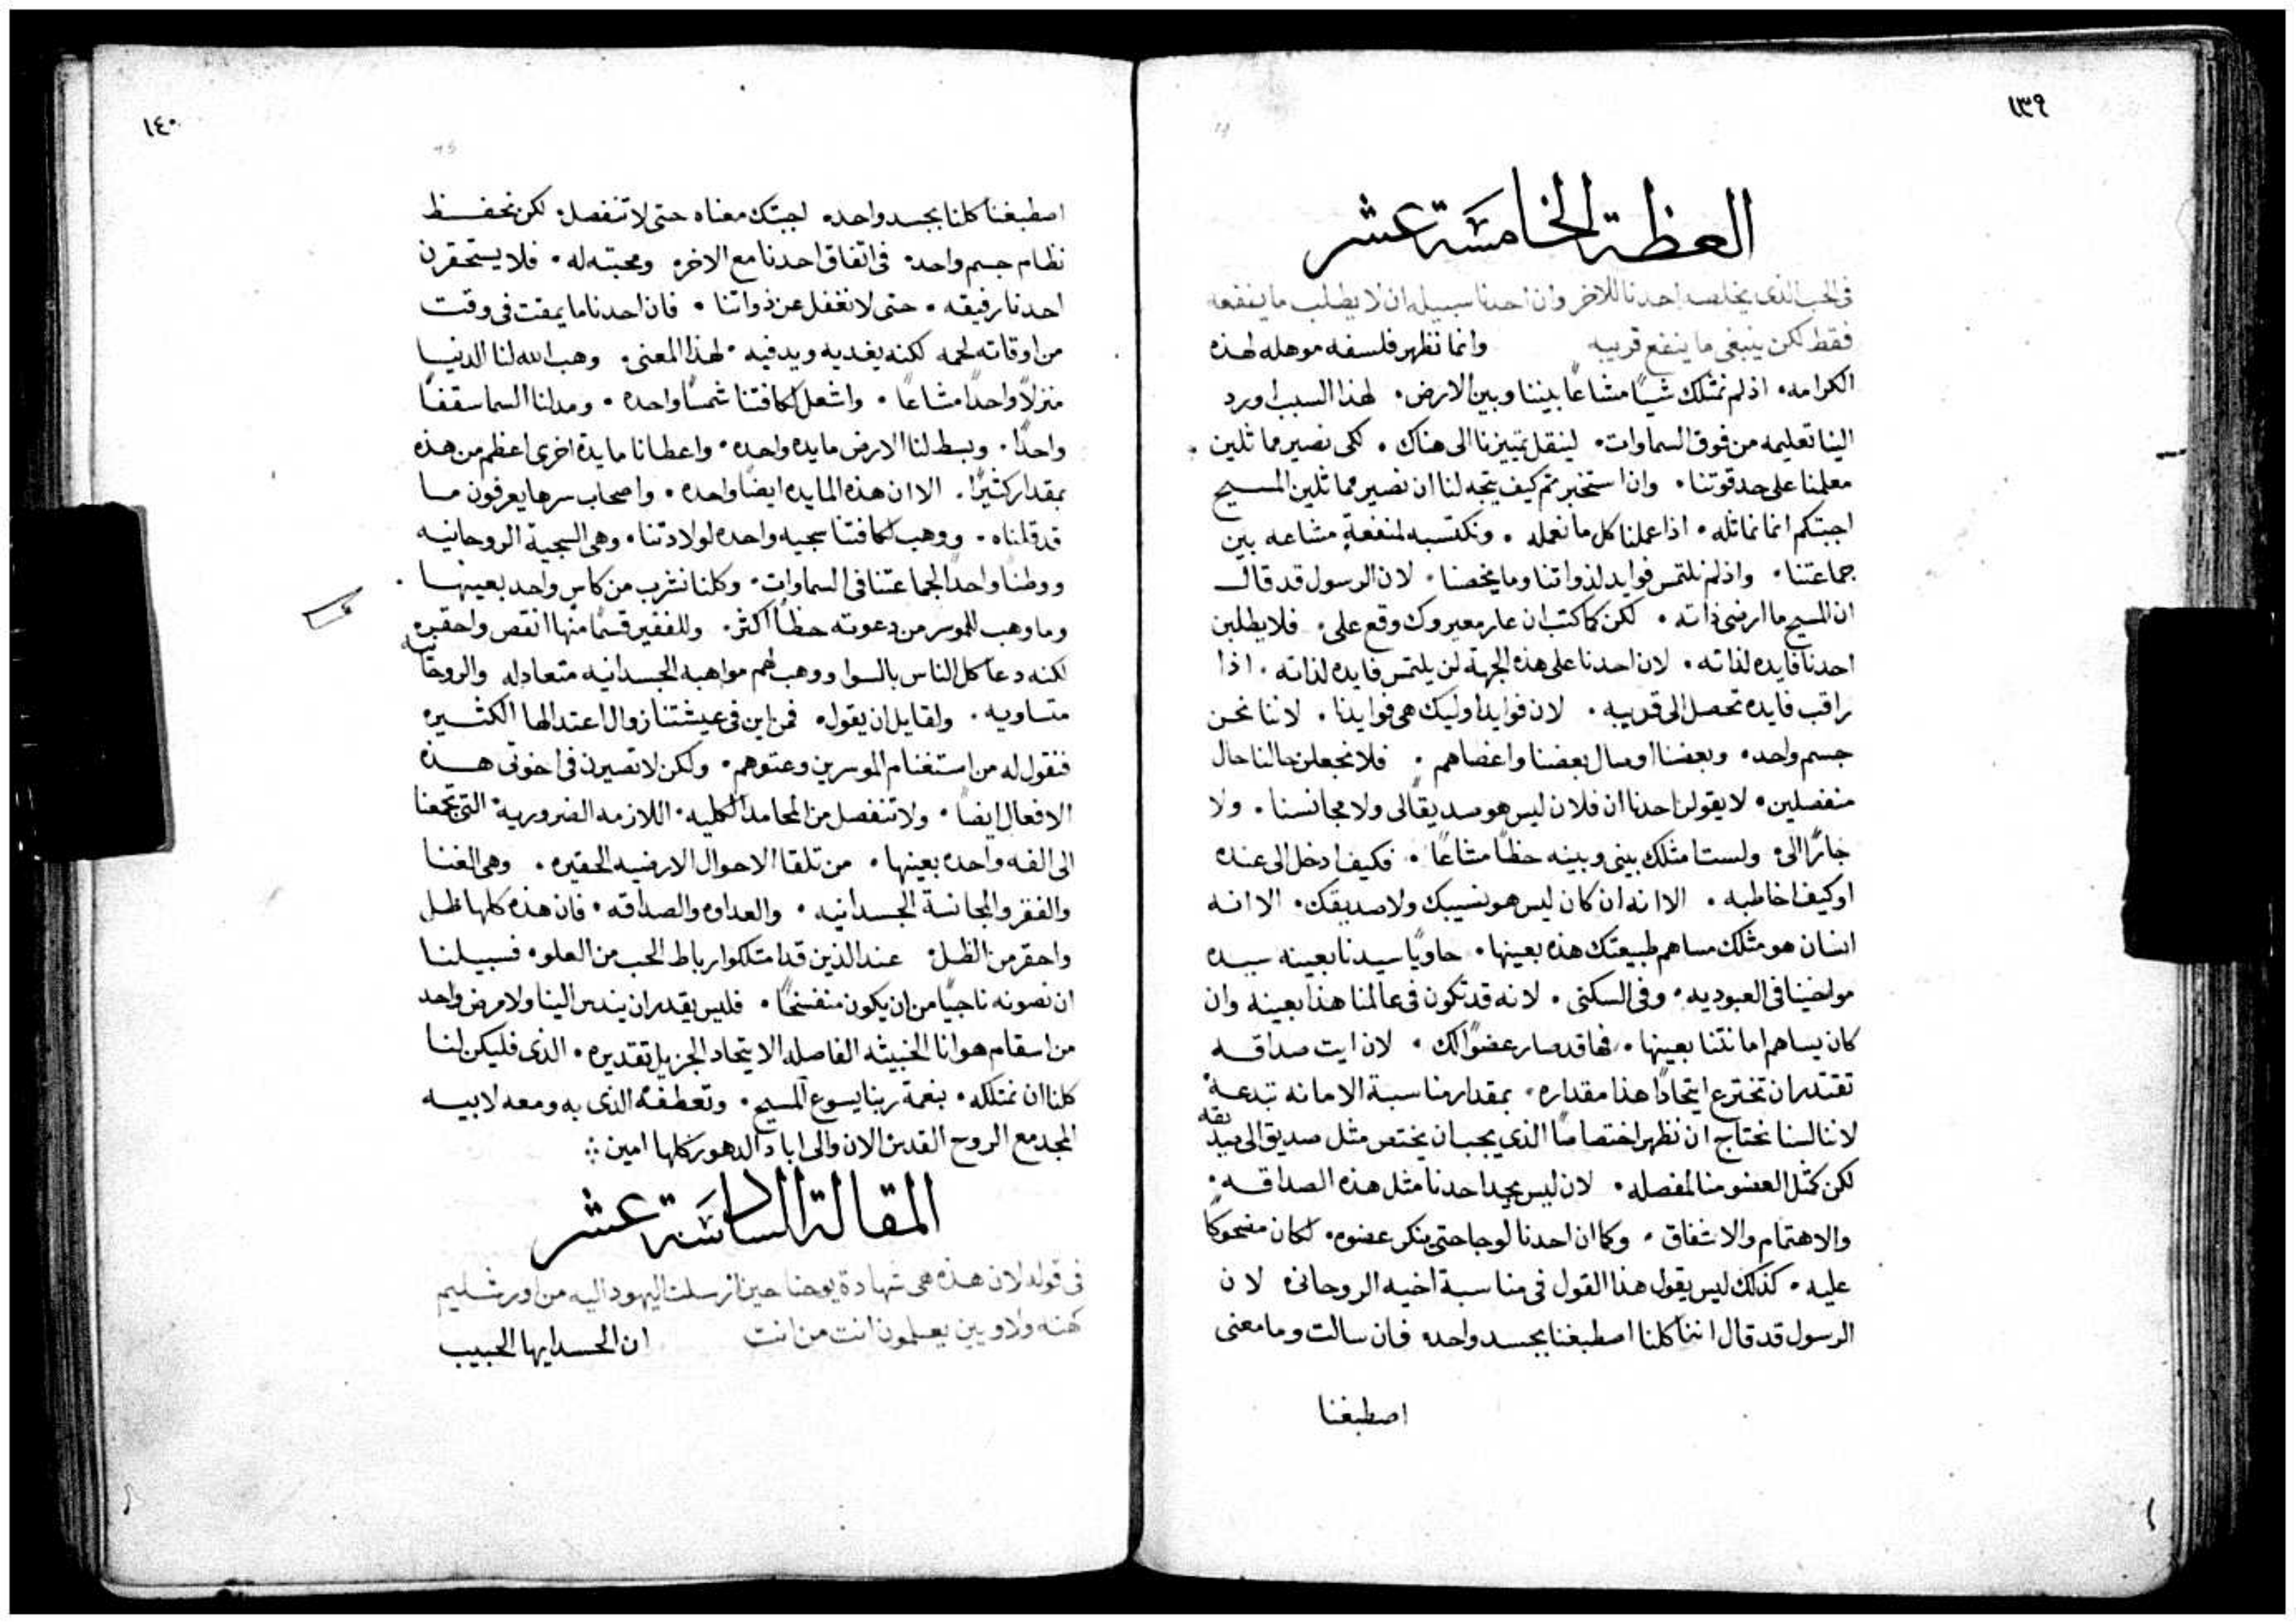 ١٣٩
العظة الخامسة عشر
في الحب الذي يخلصه احدنا للاخر وان احدنا سبيله ان لا يطلب ما ينفعه
فقط لكن ينبغي ما ينفع قريبه وانما تظهر فلسفه موهله لهذه
الكرامه. اذ لم نمتلك شيًا مشاعًا بيننا وبين الارض. لهذا السبب اورد
الينا تعليمه من فوق السماوات. لينقل تمييزنا الى هناك. لكي نصير مماثلين
معلمنا على حد قوتنا. وان استخبرتم كيف يتجه لنا ان نصير مماثلين المسيح
اجبتكم انما نماثله. اذا عملنا كل ما نعمله. ونكتسبه لمنفعة مشاعه بين
جماعتنا. واذ لم نلتمس فوايد لذواتنا وما يخصنا. لان الرسول قد قال
ان المسيح ما ارضى ذاته. لكن كما كتب ان عار معيروك وقع علي. فلا يطلبن
احدنا فايده لذاته. لان احدنا على هذه الجهة لن يلتمس فايده لذاته. اذا
راقب فايده تحصل الى قريبه. لان فوايد اوليك هي فوايدنا. لاننا نحن
جسم واحد. وبعضنا اوصال بعضنا واعضاهم. فلا نجعلن حالنا حال
منفصلين. لا يقولن احدنا ان فلان ليس هو صديقًا لي ولا مجانسنا. ولا
جارًا لي. ولست امتلك بيني وبينه حظًا مشاعًا. فكيف ادخل الى عنده
او كيف اخاطبه. الا انه ان كان ليس هو نسيبك ولا صديقك. الا انه
انسان هو مثلك مساهم طبيعتك هذه بعينها. حاويًا سيدنا بعينه سيده
مواخينا في العبوديه. وفي السكنى. لانه قد تكون في عالمنا هذا بعينه وان
كان يساهم امانتنا بعينها. فها قد صار عضوًا لك. لان ايت صداقه
تقتدر ان تخترع اتحادًا هذا مقداره. بمقدار مناسبة الامانه تبدعه
لاننا لسنا نحتاج ان نظهر اختصاصًا الذي يجب ان يختص مثل صديق الى صديقه
لكن كمثل العضو منا لمفصله. لان ليس يجد احدنا مثل هذه الصداقه.
والاهتمام والاشفاق. وكما ان احدنا لو جا حتى ينكر عضوه. لكان مضحوكًا
عليه. كذلك ليس يقول هذا القول في مناسبة اخيه الروحاني لان
الرسول قد قال اننا كلنا اصطبغنا بجسد واحد فان سالت وما معنى
اصطبغنا
١٤٠
اصطبغنا كلنا بجسد واحد. اجبتك معناه حتى لا تنفصل. لكن نحفظ
نظام جسم واحد. في اتفاق احدنا مع الاخر. ومحبته له. فلا يستحقرن
احدنا رفيقه. حتى لا نغفل عن ذواتنا. فان احدنا ما يمقت في وقت
من اوقاته لحمه لكنه يغديه ويدفيه. لهذا المعنى. وهب الله لنا الدنيا
منزلاً واحدًا مشاعًا. واشعل لكافتنا شمسًا واحده. ومد لنا السما سقفًا
واحدًا. وبسط لنا الارض مايده واحده. واعطانا مايدة اخرى اعظم من هذه
بمقدار كثيرًا. الا ان هذه المايده ايضًا واحده. واصحاب سرها يعرفون ما
قد قلناه. ووهب لكافتنا سجيه واحده لولادتنا. وهي السجية الروحانيه
ووطنًا واحدًا لجماعتنا في السماوات. وكلنا نشرب من كاس واحد بعينها
وما وهب للموسر من دعوته حظًا اكثر. وللفقير قسمًا منها انقص واحقر
لكنه دعا كل الناس بالسوا ووهب لهم مواهبه الجسدانيه متعادله والروحانيه
متساويه. ولقايل ان يقول. فمن اين في عيشتنا زوال اعتدالها الكثير
فنقول له من استغنام الموسرين وعتوهم. ولكن لا تصيرن في اخوتي هذه
الافعال ايضًا. ولا تنفصل من المحامد الكليه. اللازمه الضروريه التي تجمعنا
الى الفه واحده بعينها. من تلقا الاحوال الارضيه الحقيره. وهي الغنا
والفقر والمجانسة الجسدانيه. والعداوه والصداقه. فان هذه كلها ظل
واحقر من الظل. عند الذين قد امتلكوا رباط الحب من العلو. فسبيلنا
ان نصونه ناجيًا من ان يكون منفسخًا. فليس يقدر ان يندس الينا ولا مرض واحد
من اسقام هوانا الخبيثه الفاصله الاتحاد الجزيل تقديره. الذي فليكن لنا
كلنا ان نمتلكه. بنعمة ربنا يسوع المسيح. وتعطفه الذي به ومعه لابيه
المجد مع الروح القدس الان والى اباد الدهور كلها امين:
المقالة السادسة عشر
في قوله لان هذه هي شهادة يوحنا حين ارسلت اليهود اليه من اورشليم
كهنه ولاويين يعلمون انت من انت ان الحسد ايها الحبيب